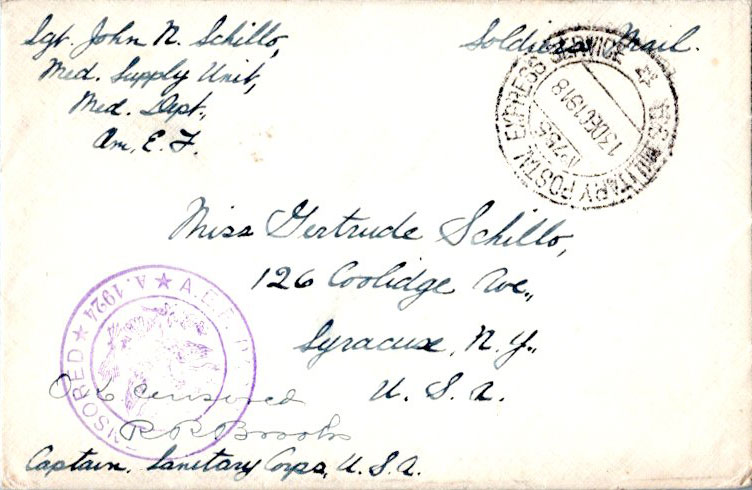 Sgt. John N. Schillo,
Med. Supply Unit,
Med. Dept.,
Am. E. F.
Soldiers Mail.
U.S. MILITARY POSTAL EXPRESS SERVICE
13DEC1918
Nº755
Miss Gertrude Schillo,
126 Coolidge Ave.,
Syracuse, N. Y.,
U. S. A.
A.E.F.
CENSORED
A.1924
O.K. censored
R R Brooks
Captain. Sanitary Corps, U.S.A.